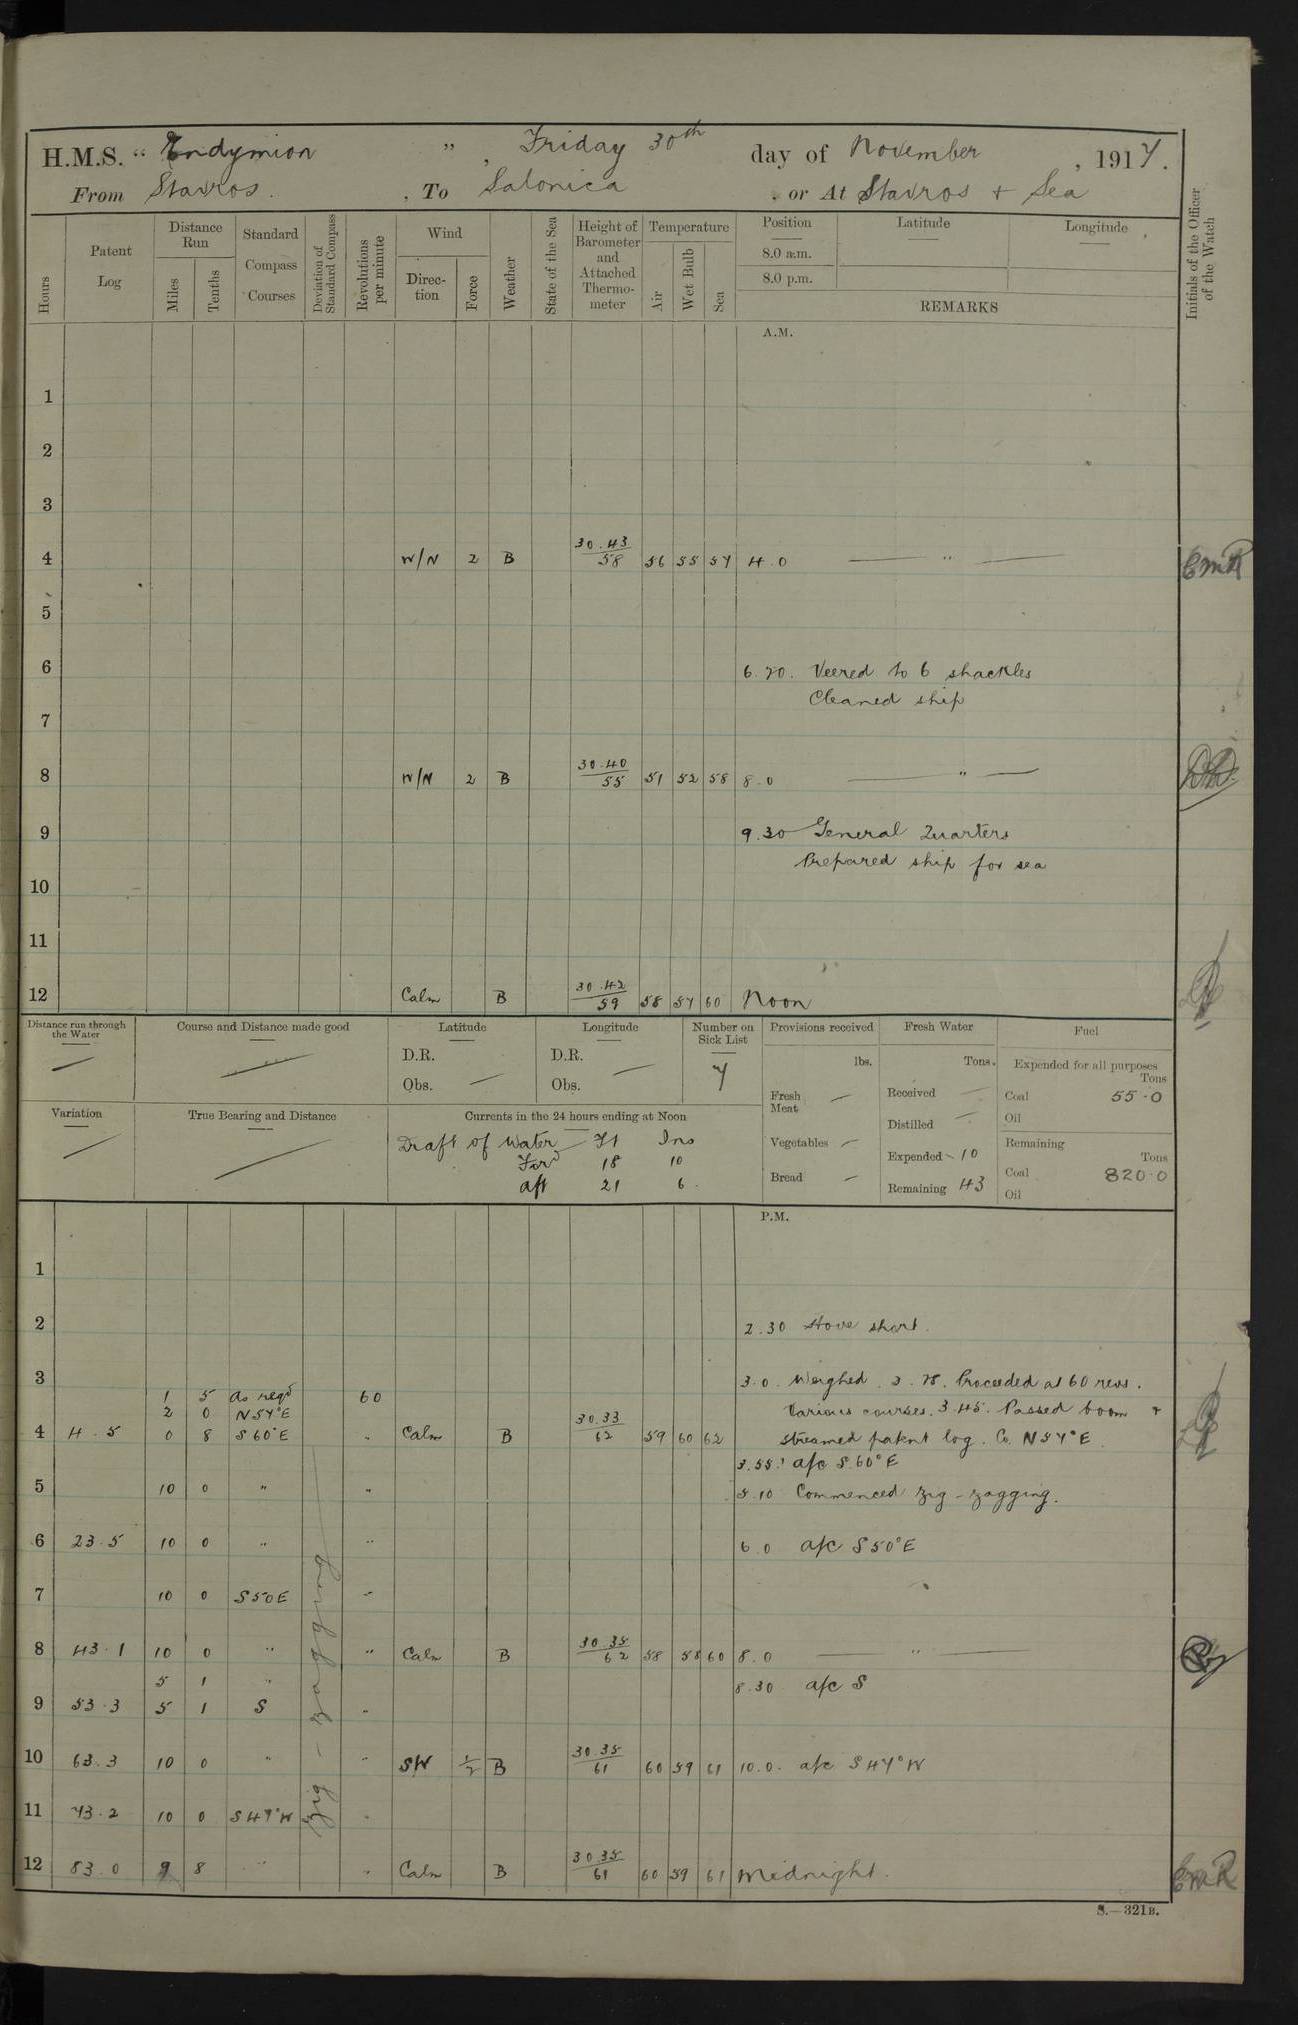 H.M.S. " Endymion " , Friday 30th day of November , 1917.
From Stavros. , To Salonica , or At Stavros + Sea
Hours
Patent Log
Distance Run
Miles
Tenths
Standard Compass Courses
Deviation of Standard Compass
Revolutions per minute
Wind
Direction
Force
Weather
State of the Sea
Height of Barometer and Attached Thermometer
Temperature
Air
Wet Bulb
Sea
Position
Latitude
Longitude
8.0 a.m.
8.0 p.m.
REMARKS
Initials of the Officer of the Watch
A.M.
1
2
3
4 W/N 2 B 30.43/58 56 55 57 4.0 — " — EMR
5
6 6.20. Veered to 6 shackles
Cleaned ship
7
8 W/N 2 B 30.40/55 51 52 58 8.0 — " —
9 9.30 General Quarters
Prepared ship for sea
10
11
12 Calm B 30.42/59 58 57 60 Noon
Distance run through the Water
Course and Distance made good
Latitude
D.R.
Obs. —
Longitude
D.R.
Obs. —
Number on Sick List
7
Provisions received
lbs.
Fresh Meat —
Vegetables —
Bread —
Fresh Water
Tons.
Received —
Distilled —
Expended - 10
Remaining 43
Fuel
Expended for all purposes
Tons
Coal 55.0
Oil
Remaining
Tons
Coal 820.0
Oil
Variation
True Bearing and Distance
Currents in the 24 hours ending at Noon
Draft of Water — Ft Ins
For'd 18 10
aft 21 6.
P.M.
1
2 2.30 Hove short.
3 3.0. Weighed. 3.28. Proceeded at 60 revs.
1 5 As reqd 60
2 0 N57°E Various courses. 3.45. Passed boom +
4 4.5 0 8 S60°E " Calm B 30.33/62 59 60 62 streamed patent log. Co. N57°E.
3.55. a/c S.60°E
5 10 0 " " 5.10 Commenced zig-zagging.
6 23.5 10 0 " " 6.0 a/c S50°E
7 10 0 S50E "
8 43.1 10 0 " " Calm B 30.35/62 58 58 60 8.0 — " —
5 1 " 8.30 a/c S
9 53.3 5 1 S "
10 63.3 10 0 " " SW 1/2 B 30.35/61 60 59 61 10.0. a/c S47°W
11 73.2 10 0 S47°W "
12 83.0 9 8 " " Calm B 30.35/61 60 59 61 Midnight. EMR
zig-zagging
S.—321B.